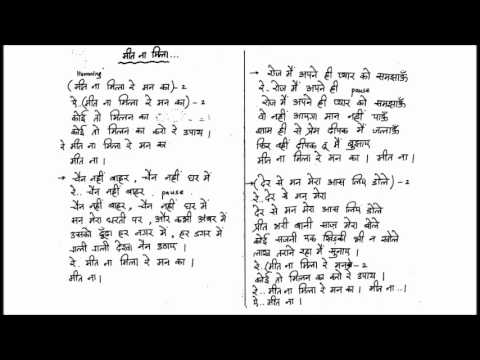 मीत ना मिला...
Humming
(मीत ना मिला रे मन का)-2
रे (मीत ना मिला रे मन का)-2
कोई तो मिलन का
कोई तो मिलन का करो रे उपाय।
रे मीत ना मिला रे मन का
मीत ना।
→ चैन नहीं बाहर, चैन नहीं घर में
रे.. चैन नहीं बाहर, pause
चैन नहीं बाहर, चैन नहीं घर में
मन मेरा धरती पर, और कभी अंबर में
उसको ढूँढा हर नगर में, हर डगर में
गली गली देखा नैन उठाए।
रे मीत ना मिला रे मन का।
मीत ना।
→ रोज़ मैं अपने ही प्यार को समझाऊँ
रे.. रोज़ मैं अपने ही pause
रोज़ मैं अपने ही प्यार को समझाऊँ
वो नहीं आएगा मान नहीं पाऊँ
शाम ही से प्रेम दीपक मैं जलाऊँ
फिर वही दीपक दूँ मैं बुझाए
मीत ना मिला रे मन का। मीत ना।
→ (देर से मन मेरा आस लिए डोले)-2
रे.. देर से मन मेरा
देर से मन मेरा आस लिए डोले
प्रीत भरी बानी साज़ मेरा बोले
कोई सजनी एक खिड़की भी न खोले
लाख तराने रहा मैं सुनाए।
रे.. (मीत ना मिला रे मनका-2
कोई तो मिलन का करो रे उपाय।
रे.. मीत ना मिला रे मन का। मीत ना..।
रे.. मीत ना।